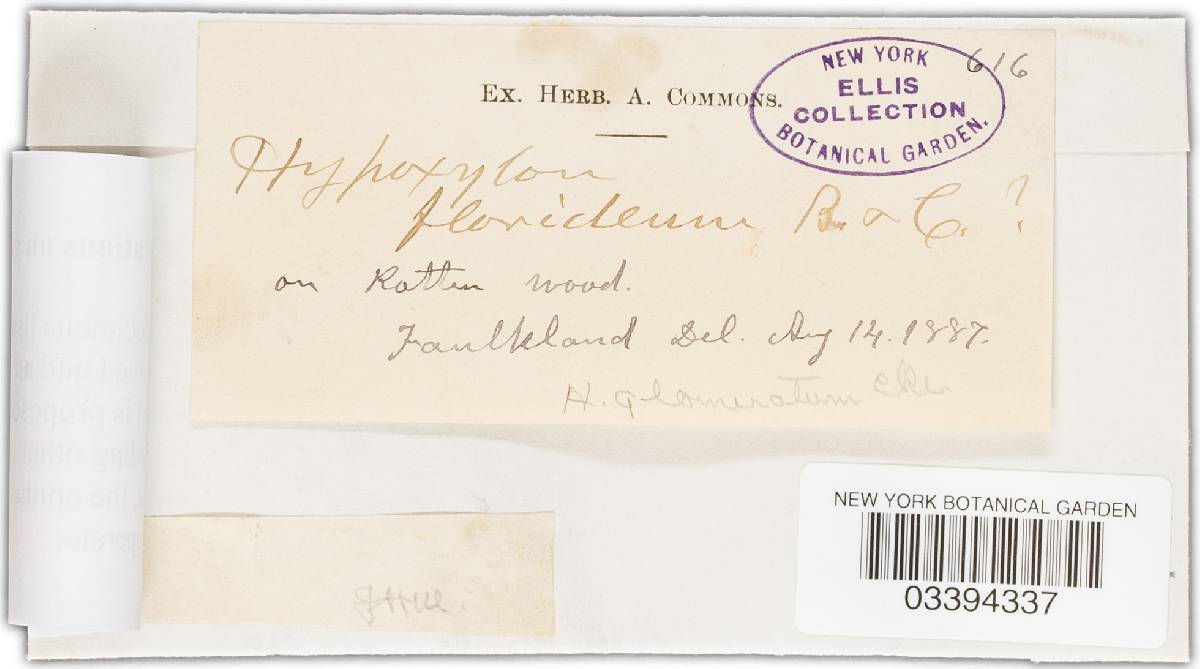 616
NEW YORK
ELLIS
COLLECTION
BOTANICAL GARDEN.
EX. HERB. A. COMMONS.
Hypoxylon
florideum B. & C. ?
on Rotten wood.
Faulkland Del. Aug 14. 1887.
H. glomeratum Cke
NEW YORK BOTANICAL GARDEN
03394337